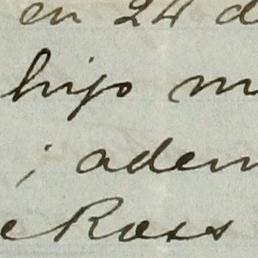 en 24 d
hijo m
; adem
e Ross